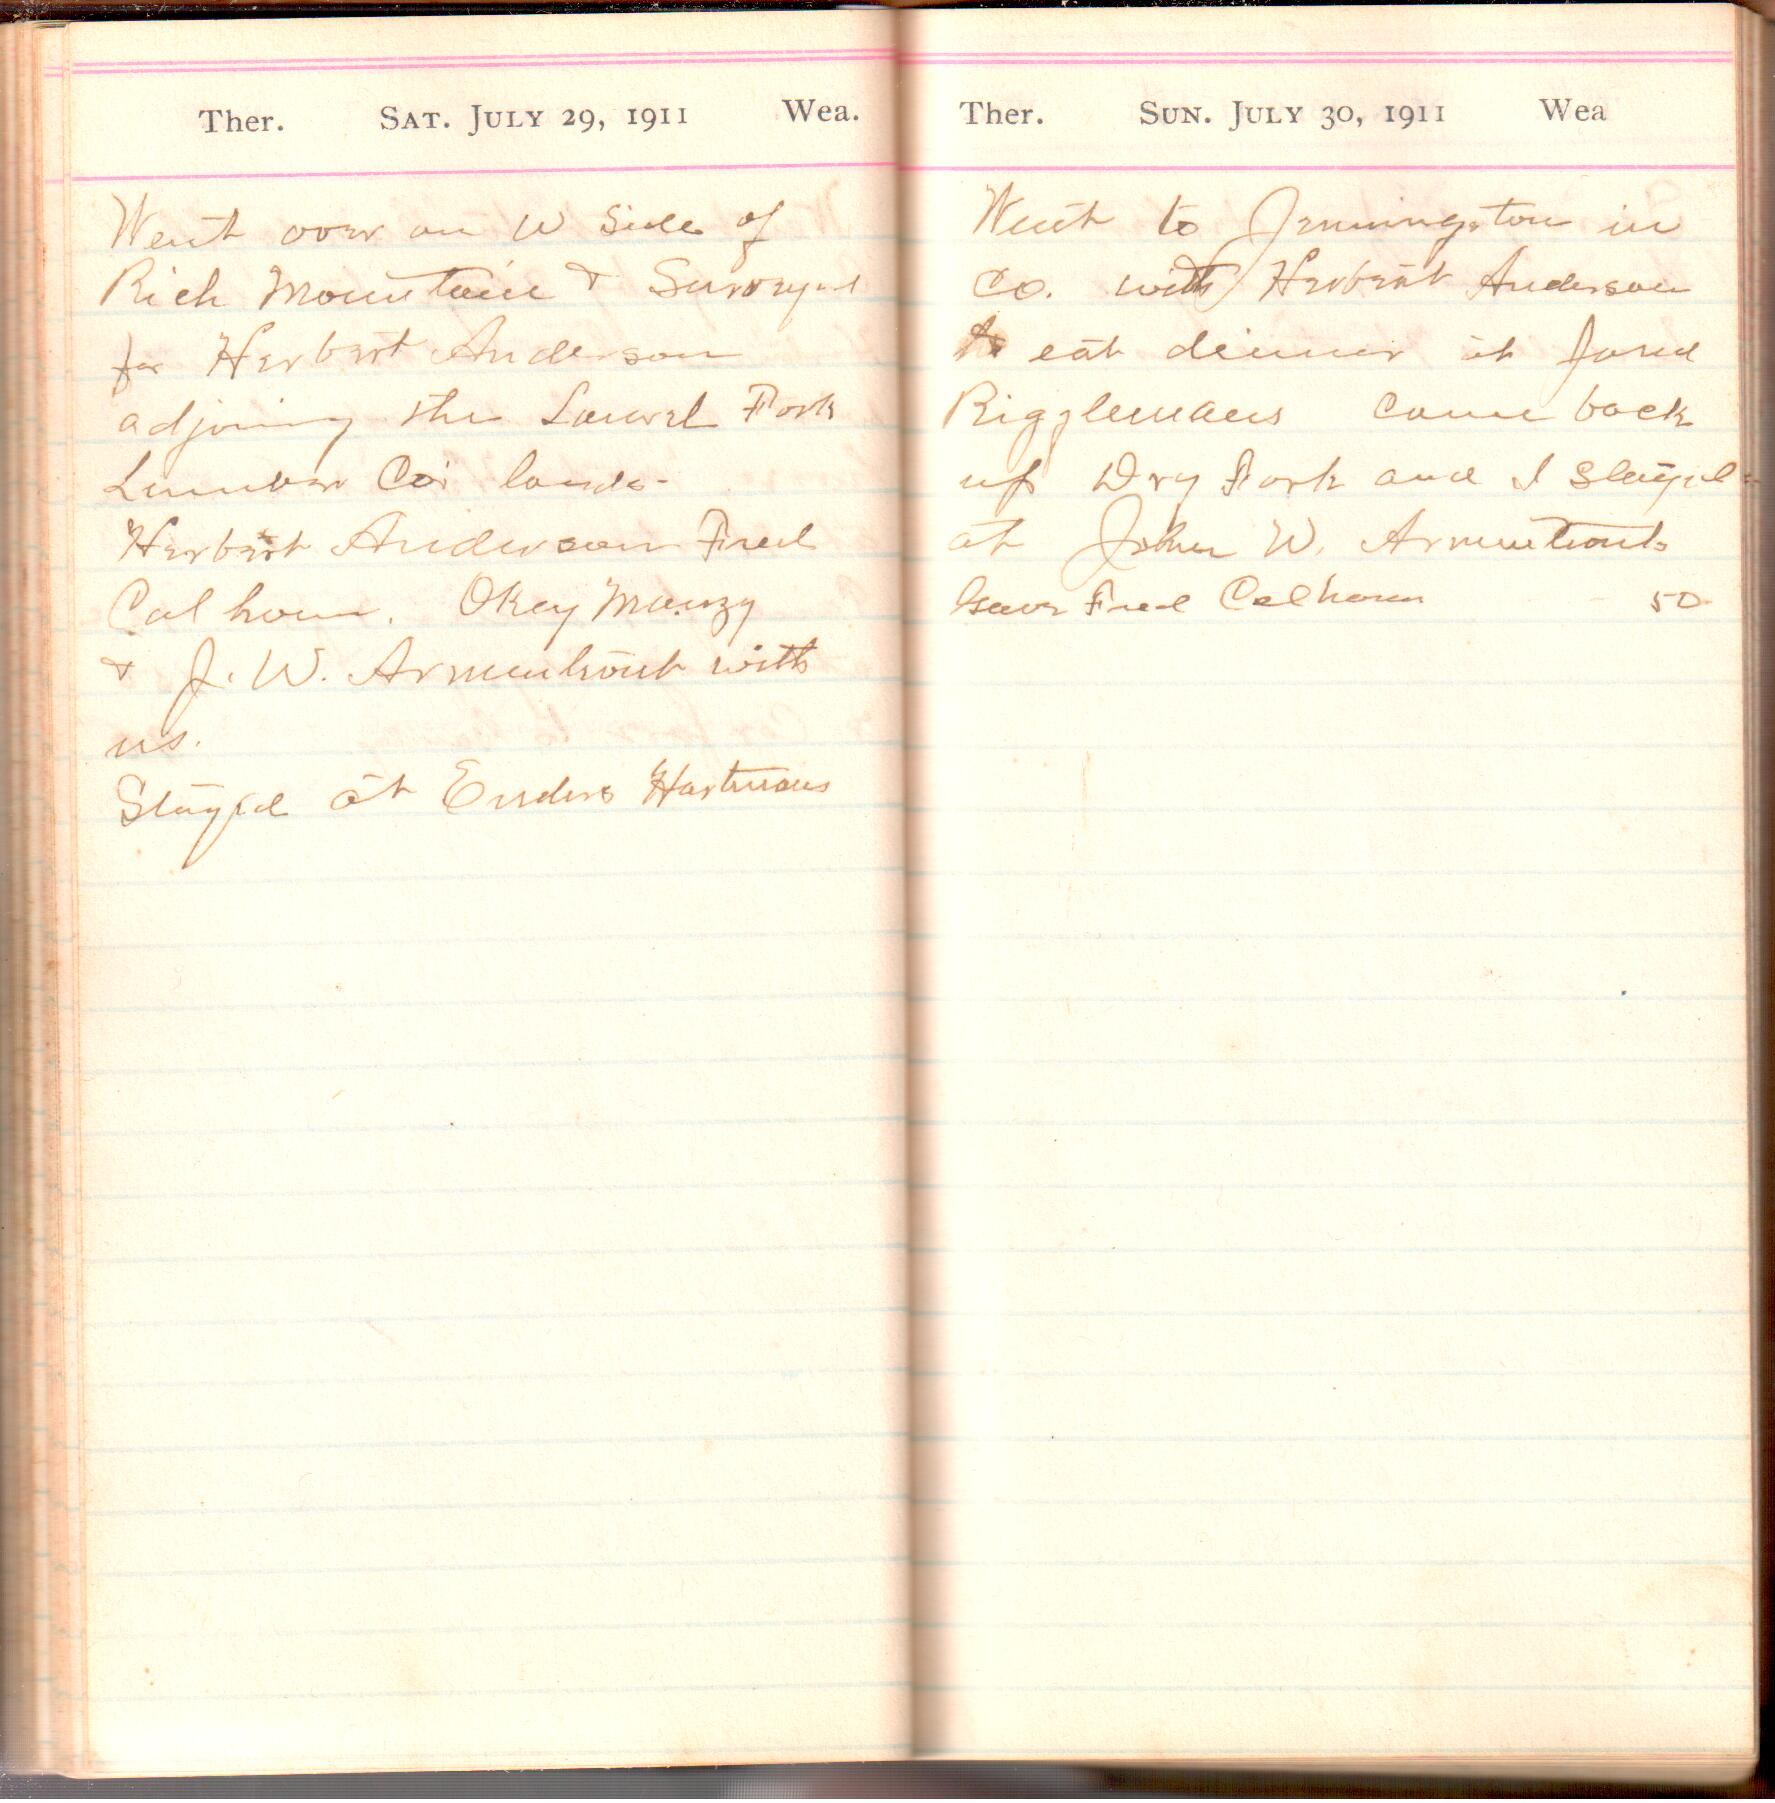 Ther. SAT. JULY 29, 1911 Wea.
Went over on W Side of
Rich Mountain & Surveyed
for Herbert Anderson
adjoining the Laurel Fork
Lumber Co's lands-
Herbert Anderson Fred
Calhoun. Okey Mauzy
& J. W. Armentrout with
us.
Stayed at Enders Hartmans
Ther. SUN. JULY 30, 1911 Wea
Went to Jenningston in
Co. with Herbert Anderson
eat dinner at Jared
Rigglemans Came back
up Dry Fork and I Stayed
at John W. Armentrouts
Gave Fred Calhoun 50